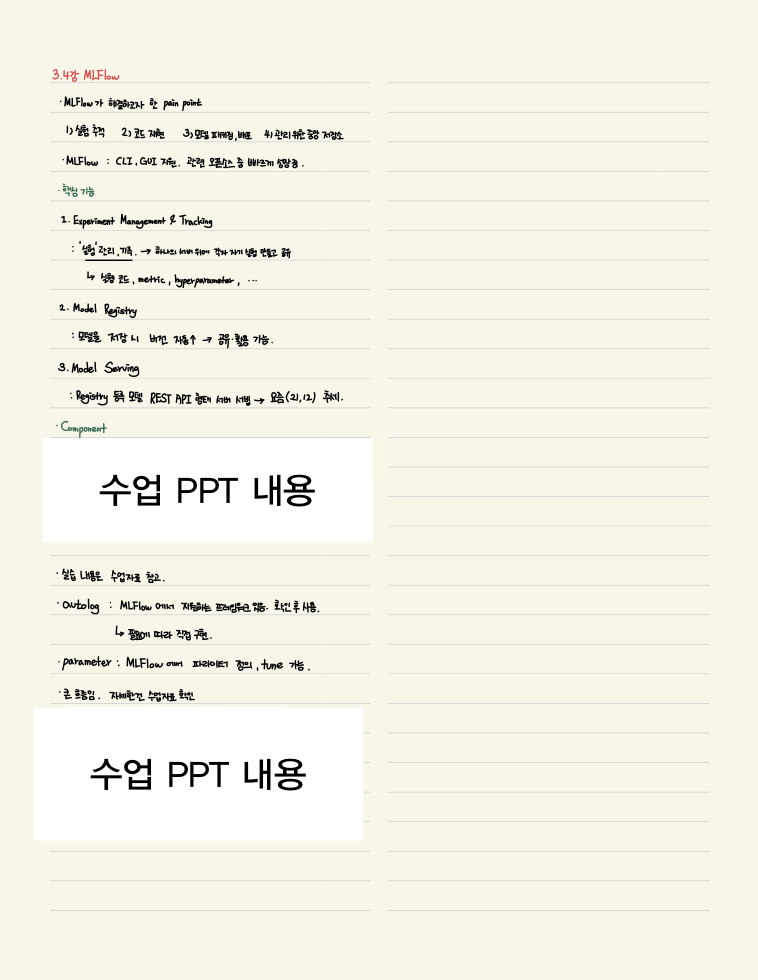 3.4강 MLFlow
· MLFlow가 해결하고자 한 pain point
1) 실험 추적 2) 코드 재현 3) 모델 패키징, 배포 4) 관리 위한 중앙 저장소
· MLFlow : CLI, GUI 지원. 관련 오픈소스 중 빠르게 성장중.
· 핵심 기능
1. Experiment Management & Tracking
: '실험' 관리, 기록. → 하나의 서버 위에 각자 자기 실험 만들고 공유
↳ 실험 코드, metric, hyperparameter, ...
2. Model Registry
: 모델을 저장 시 버전 자동↑ → 공유·활용 가능.
3. Model Serving
: Registry 등록 모델 REST API 형태 서버 서빙 → 요즘(21,12) 추세.
· Component
수업 PPT 내용
· 실습 내용은 수업자료 참고.
· autolog : MLFlow 에서 지원하는 프레임워크 있음. 확인 후 사용.
↳ 필요에 따라 직접 구현.
· parameter : MLFlow 에서 파라미터 정의, tune 가능.
· 큰 흐름임. 자세한건 수업자료 확인
수업 PPT 내용